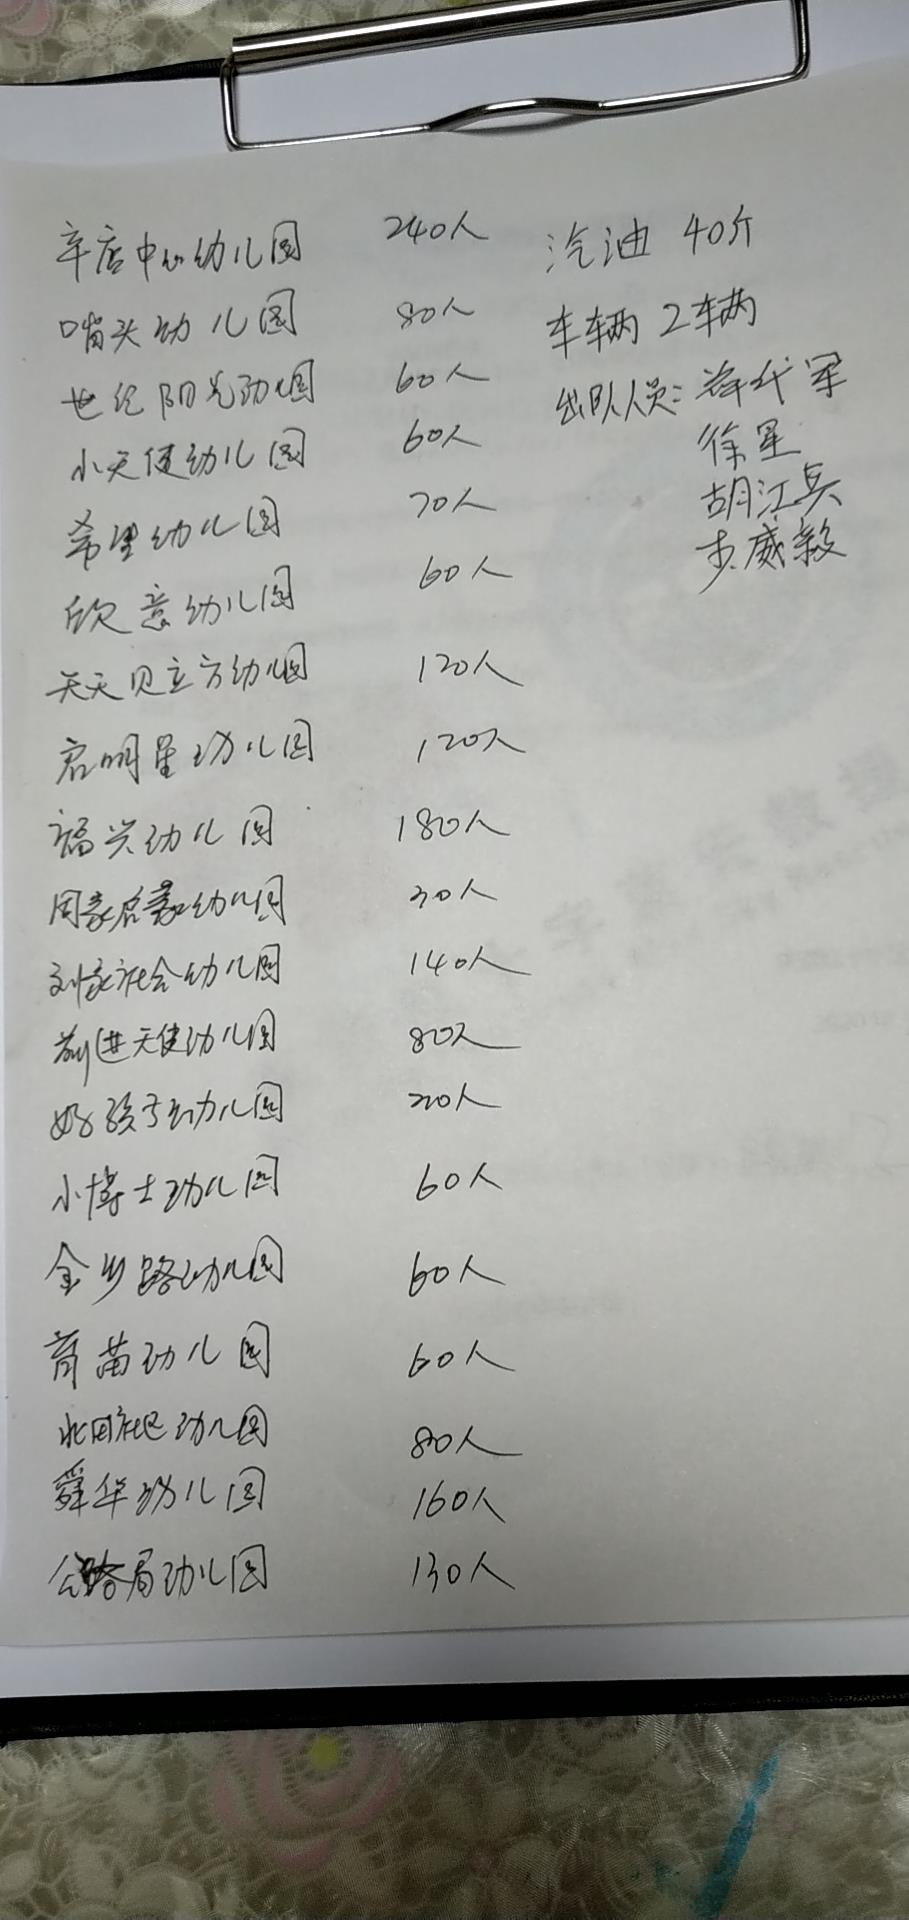 辛店中心幼儿园 240人 汽油 40斤
哨头幼儿园 80人 车辆 2车两
世纪阳光幼儿园 60人 出队人员:
小天使幼儿园 60人 徐星
希望幼儿园 70人 胡江兵
欣意幼儿园 60人 威毅
天天贝立方幼儿园 120人
启明星幼儿园 120人
福兴幼儿园 180人
周家启蒙幼儿园 30人
刘家社会幼儿园 140人
前进天使幼儿园 80人
好孩子幼儿园 20人
小博士幼儿园 60人
金乡路幼儿园 60人
育苗幼儿园 60人
北田社区幼儿园 80人
舜华幼儿园 160人
公路局幼儿园 130人